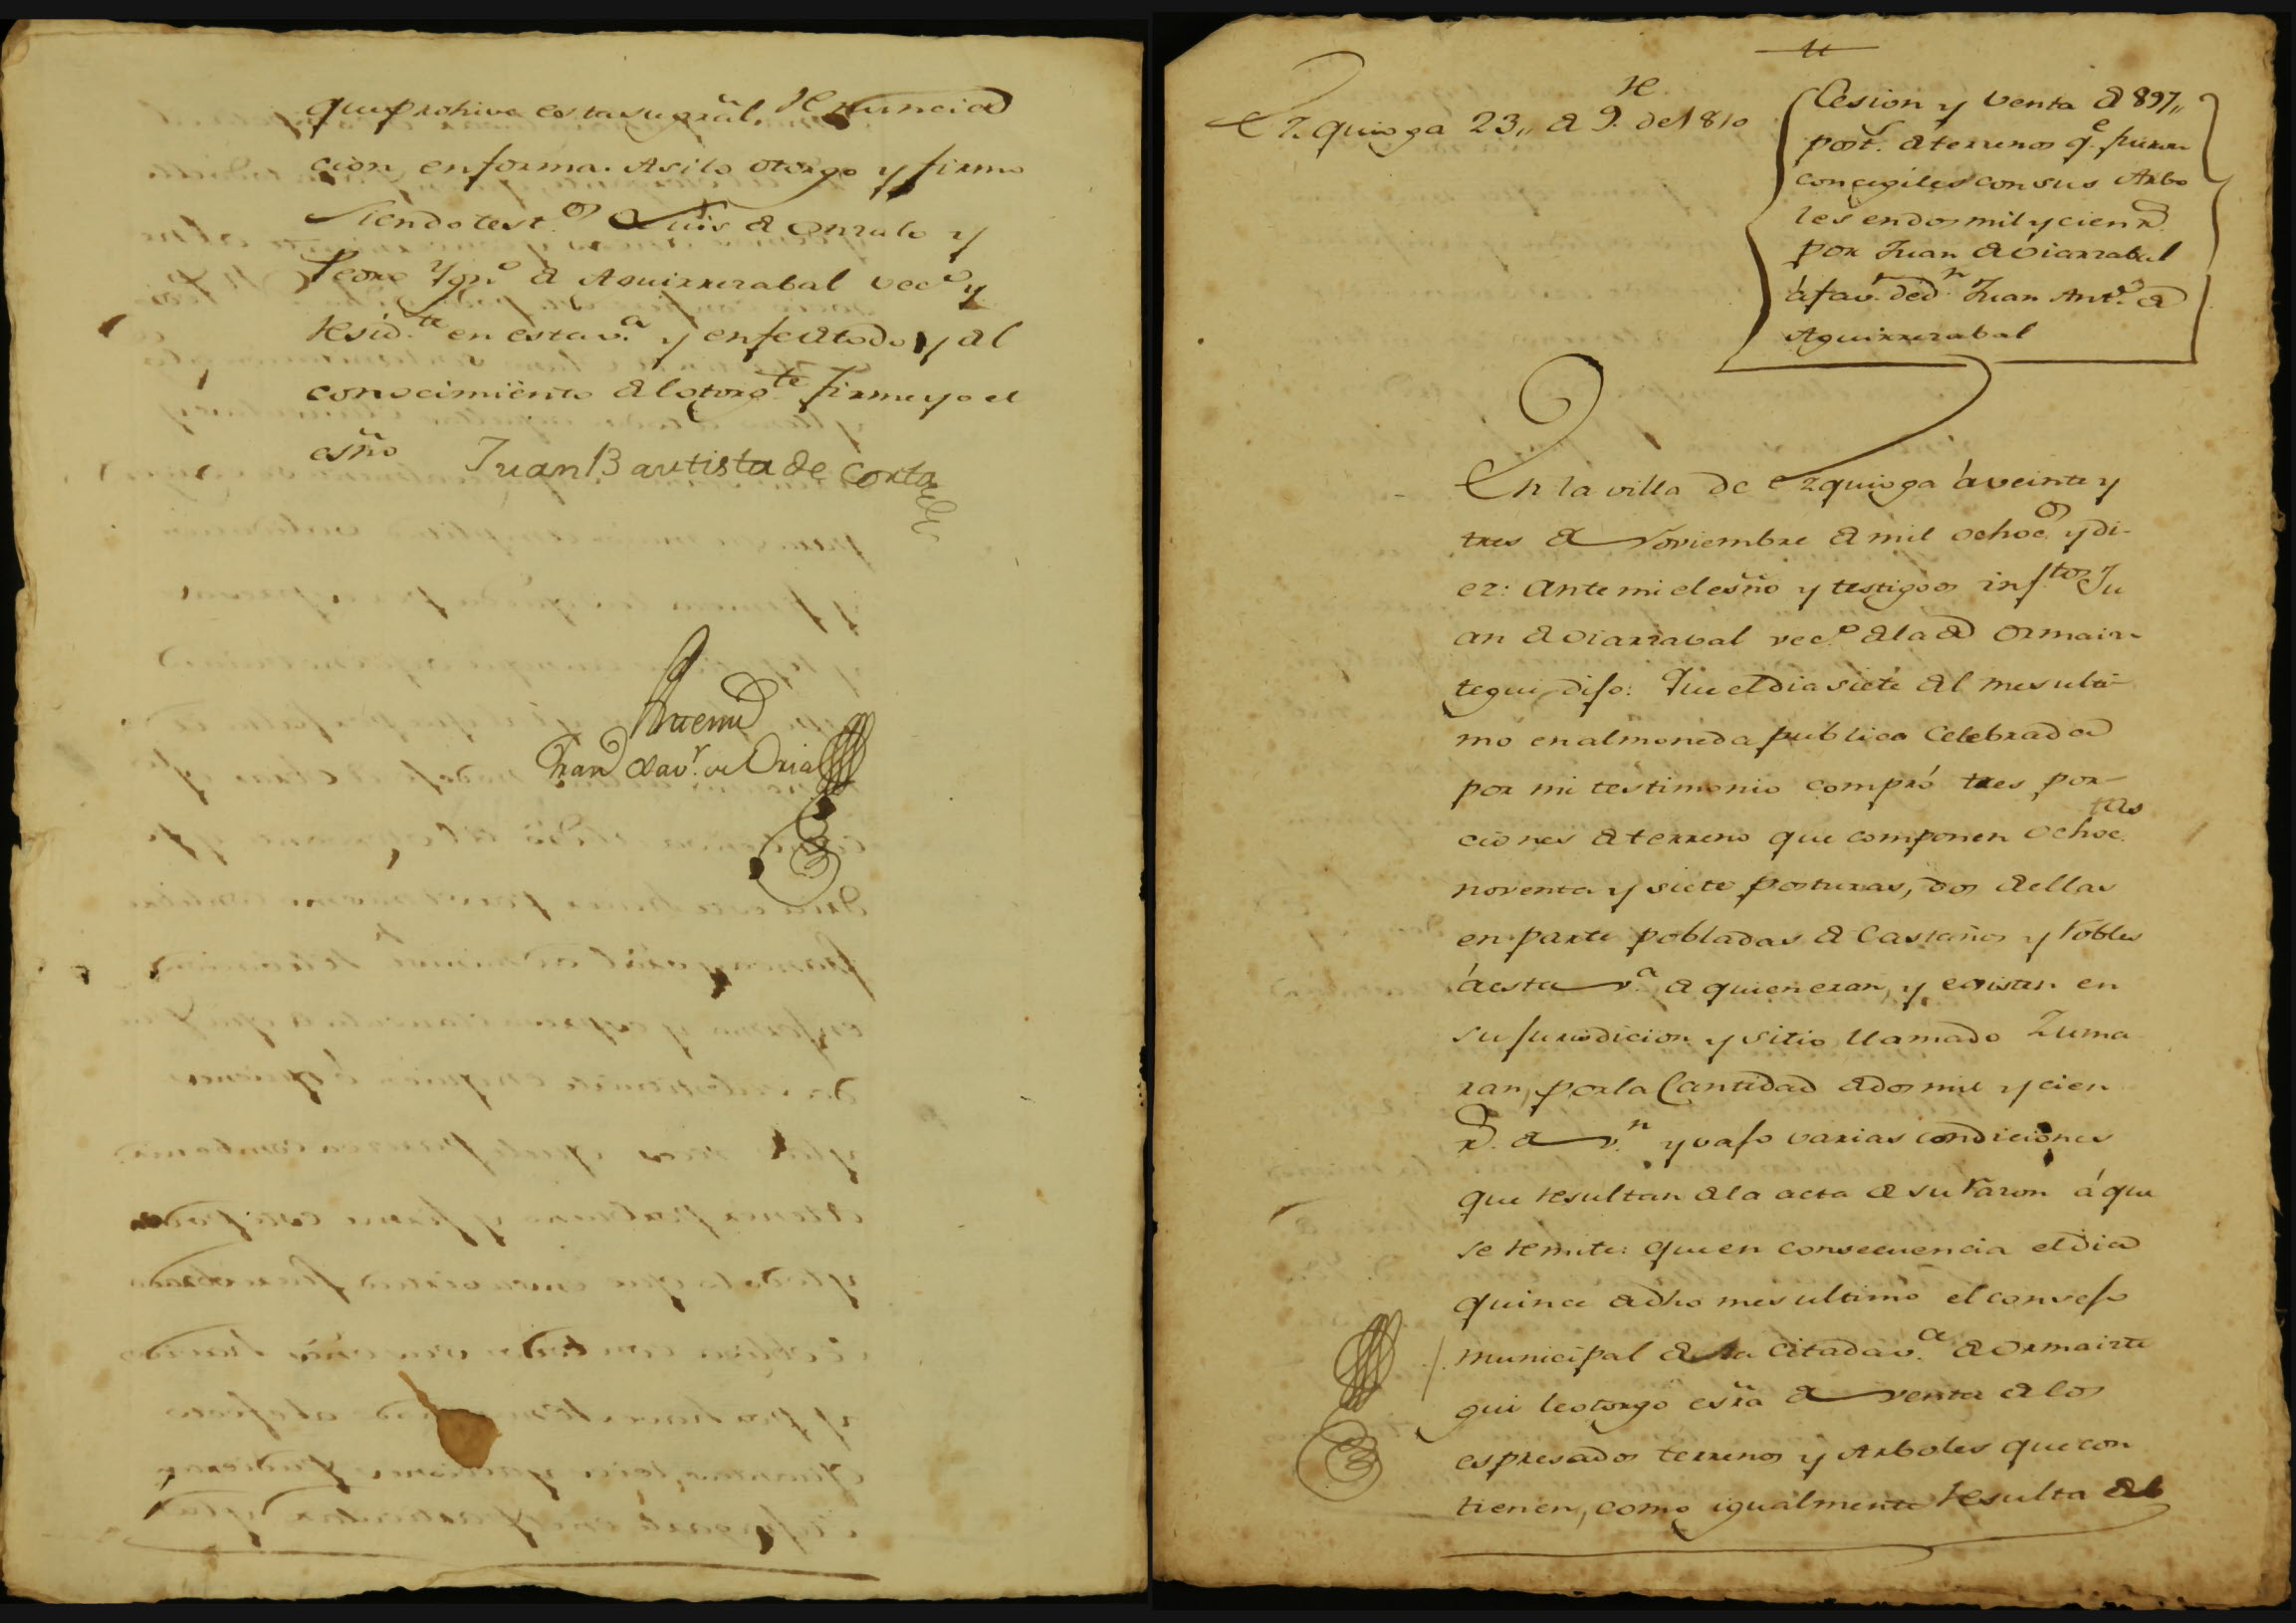 que prohive esta su gral. Renuncia
cion en forma. Asi lo otorgo y firmo
siendo test.os Luis de Onzalo y
Pedro Ygn.o de Aguirrezabal vec.os y
resid.te en esta v.a y en fe de todo y del
conocimiento del otorg.te firme yo el
esño Juan Bautista de Corta
Antemi
Fran.co Xav.r de Oria
Ezquioga 23,, de 9.re de 1810
Cesion y venta de 897,,
post.s de terrenos q.e fueron
concegiles con sus Arbo
les en dos mil y cien r.s
por Juan de Oiarzabal
á fav.r de d.n Juan Ant.o de
Aguirrezabal
En la villa de Ezquioga á veinte y
tres de Noviembre de mil ochoc.os y di-
ez: Ante mi el esño y testigos inf.tos Ju
an de Oiarzaval vec.o de la de Ormaiz-
tegui, dijo: Que el dia siete del mes ulti-
mo en almoneda publica celebrada
por mi testimonio compró tres por-
ciones de terreno que componen ochoc.tas
noventa y siete posturas, dos de ellas
en parte pobladas de Castaños y robles
á esta v.a de quien eran, y existen en
su jurisdicion y sitio llamado Zuma
ran, por la Cantidad de dos mil y cien
r.s de v.n y vajo varias condiciones
que resultan de la acta de su razon á que
se remite: que en consecuencia el dia
quince de dho mes ultimo el consejo
municipal de la citada v.a de Ormaizte
gui le otorgó esra de venta de los
espresados terrenos y Arboles que con
tienen, como igualmente resulta del